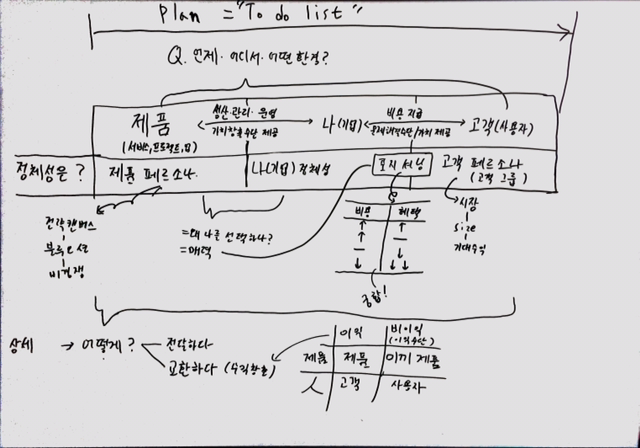 Plan = "To do list"
Q. 언제·어디서·어떤 환경?
제품 생산·관리·운영 나(기업) 비용 지급 고객(사용자)
(서비스, 프로젝트, 업) 가치창출수단 제공 문제해결수단/가치 제공
정체성은? 제품 페르소나 나(기업) 정체성 포지셔닝 고객 페르소나
(고객 그룹)
전략캔버스
블루오션
비경쟁
=왜 나를 선택하나?
=매력
비용 혜택
궁합!
시장
size
기대수익
상세 → 어떻게? 전달하다
교환하다 (수익창출)
이익 비이익
(이익수단)
제품 제품 미끼 제품
人 고객 사용자